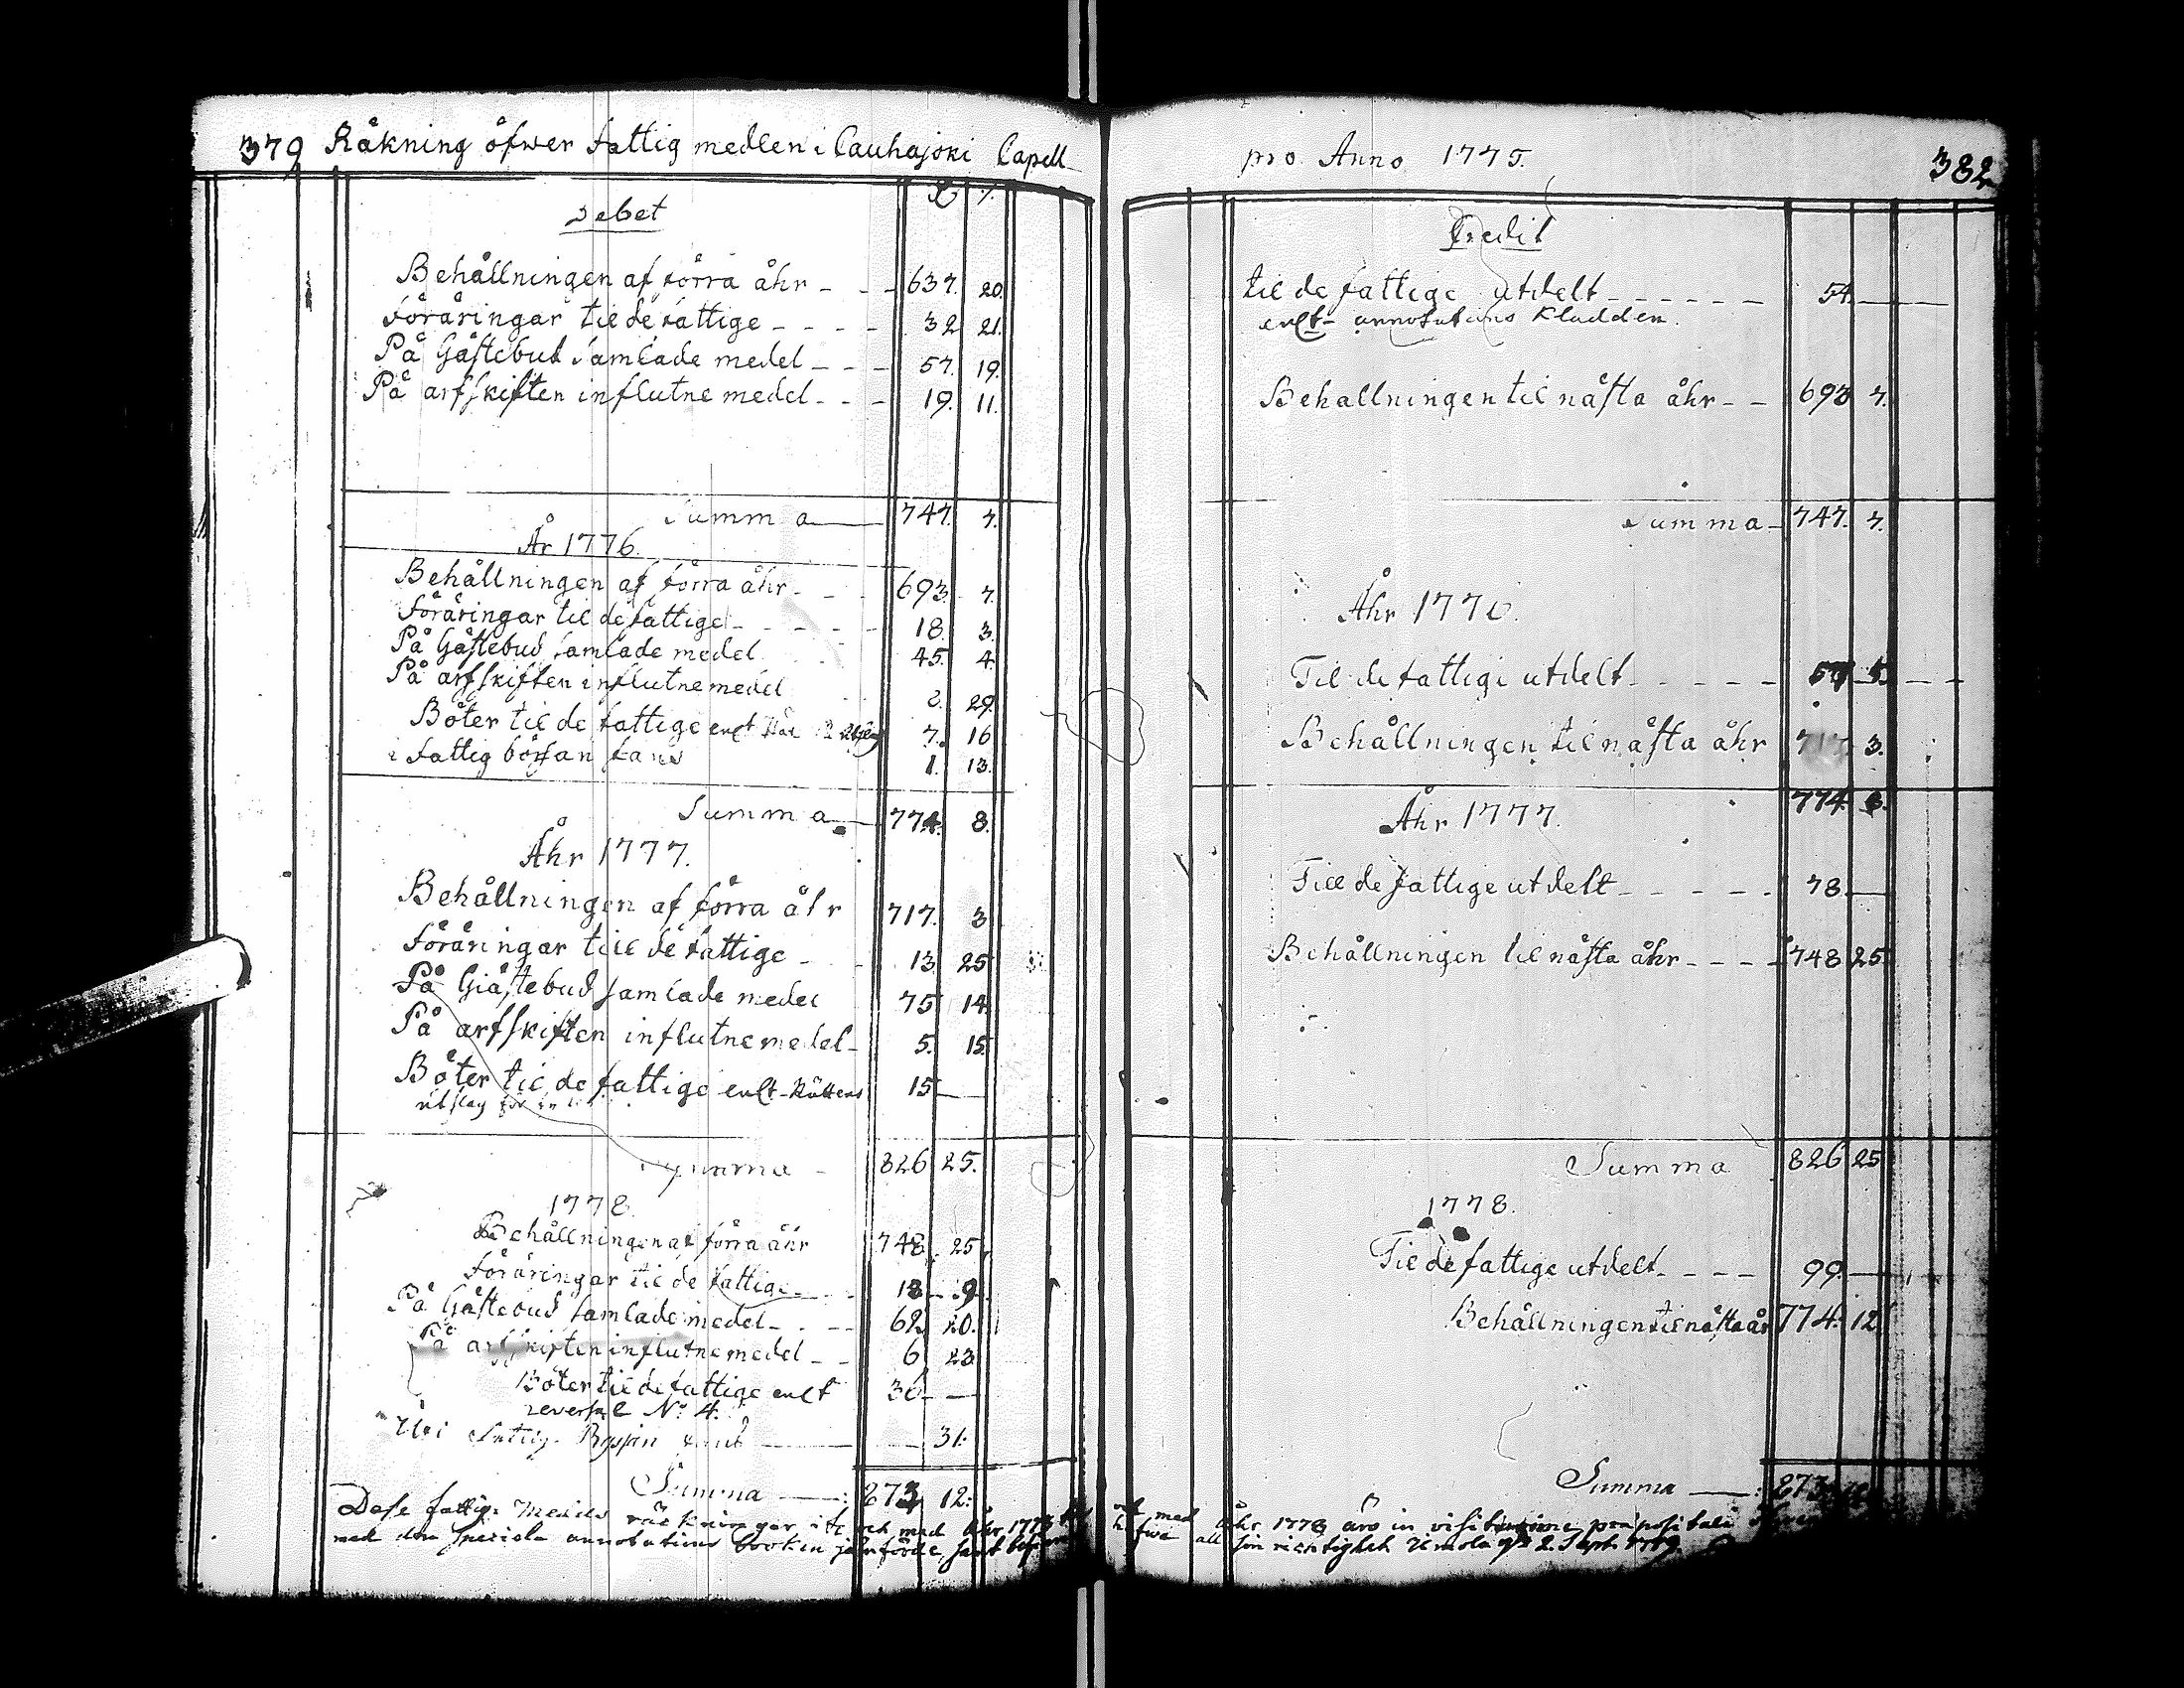 379 Räkning öfwer fattig medlen i Cauhajoki Capell
Debet
Behållningen af förra åhr - - - 637. 20.
Föräringar til de fattige - - - - 32 21.
På Gästebud samlade medel - - - 57. 19.
På arfskiften influtne medel - - - 19. 11.
Summa 747. 7.
År 1776.
Behållningen af förra åhr - - - 693. 7.
Föräringar til de fattige - - - - - 18. 3.
På Gästebud samlade medel 45. 4.
På arfskiften influtne medel 29.
Böter til de fattige enlt 7. 16
i fattig börsan fans 1. 13.
Summa 774. 8.
Åhr 1777.
Behållningen af förra åhr 717. 3
Föräringar till de fattige - - 13 25
På Giästebud samlade medel 75 14
På arfskiften influtne medel - 5. 15.
Böter til de fattige enlt Rättens 15 —
utslag
Summa - 826 25.
1778.
Behållningen af förra åhr 748. 25
Föräringar til de fattige - - 18 - 9
På Gästebud samlade medel - - - 62 20.
På arfskiften influtne medel - - 6 23
Böter til de fattige enlt 36 - —
reversal No. 4.
fattig 31.
Summa — 873 12.
Desse fattig Medels räkningar och med åhr 1775
med den speciela annotations boken jämförde, samt
pro Anno 1775. 382
Credit
til de fattige utdelt - - - - - - 54. —
enlt annotations Kladden.
Behallningen til nästa åhr - - 693 7.
Summa - 747. 7.
Åhr 1776.
Til de fattige utdelt - - - - - 57 5.
Behållningen til nästa åhr 717 3.
774. 8.
Åhr 1777.
Till de fattige utdelt - - - - - 78. —
Behållningen til nästa åhr - - - - 748 25
Summa 826 25
1778.
Til de fattige utdelt - - - - 99. —
Behållningen til nästa år 774. 12
Summa — 873. 12
med åhr 1778 äro in visitatione præpositali
all sin richtighet Ilmola d. 2. Sept. 1779.